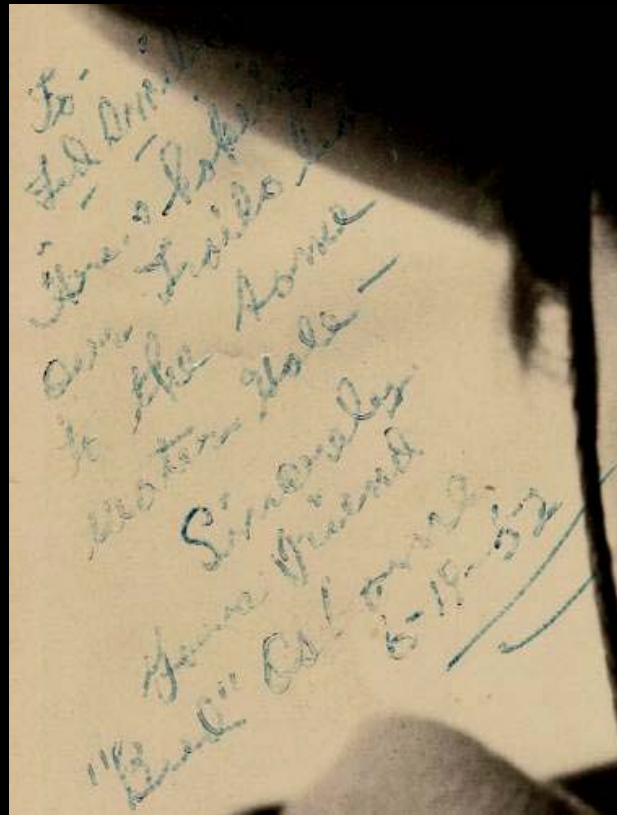 To
Here's hopin
our Trails le
to the same
water Hole —
Sincerely
Your Friend
"Bud" Osborne
6-19-52